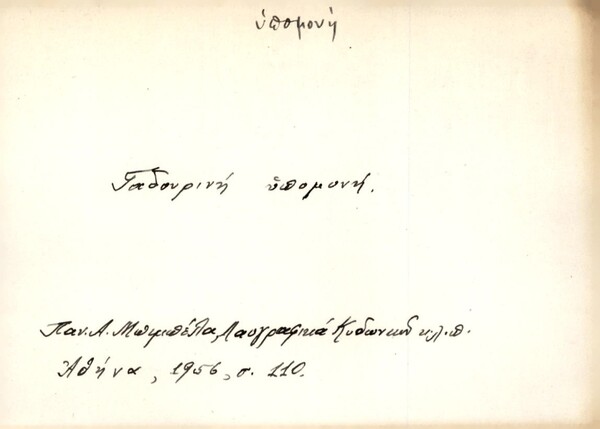 ὑπομονή
Γαδουρινή ὑπομονή.
Παν. Λ. Μπιμπέλα, Λαογραφικά Κυδωνιῶν κ.λ.π.
Ἀθήνα, 1956, σ. 110.